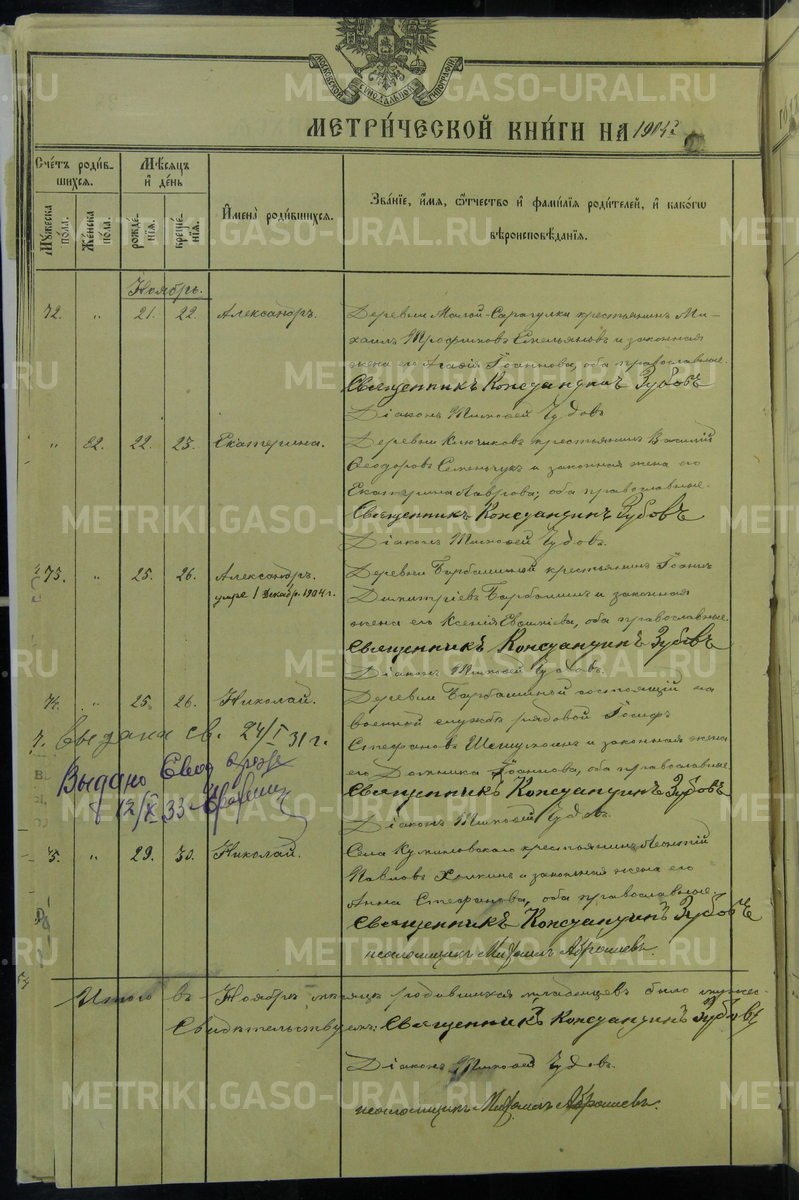 МОСКОВСКОЙ СУНОДАЛЬНОЙ ТИПОГРАФІИ
МЕТРИ́ЧЕСКОЙ КНИ́ГИ НА 1904 г.
Сче́тъ роди́в-
шихся.
Мѣ́сяцъ
и де́нь
Мужеска по́ла.
Же́нска по́ла.
рожде́-
нія.
креще́-
нія.
Имена̀ роди́вшихся.
Зва́ніе, и́мя, ѻ҆́тчество и фами́лія роди́телей, и како́гѡ
вѣроисповѣ́данія.
Ноябрь.
72. „ 21. 22. Александръ.
Деревни Малой-Сарагулки крестьянинъ Ми-
хаилъ Трофимовъ Емельяновъ и законная
жена его Агафія Іоаннова, оба православные.
Священникъ Константинъ Зубовъ
Діаконъ Тимофей Чудовъ
„ 82. 22. 23. Екатерина.
Деревни Ключиковъ крестьянинъ Василій
Ѳеодоровъ Семенчукъ и законная жена его
Екатерина Лаврова; оба православные.
Священникъ Константинъ Зубовъ
Діаконъ Тимофей Чудовъ.
73. „ 25. 26. Александръ.
умре 1 Декабр. 1904 г.
Деревни Барбашиной крестьянинъ Іоаннъ
Димитріевъ Барбашинъ и законная
жена его Ксенія, оба православные.
Священникъ Константинъ Зубовъ
Діаконъ Тимофей Чудовъ.
74. „ 25. 26. Николай.
Деревни Барбашиной состоящій на
военной службѣ рядовой Іосифъ
Стефановъ и законная жена
его Домника Іоаннова, оба православные
Священникъ Константинъ Зубовъ
Діаконъ Тимофей Чудовъ.
Выдана св. 24/I 31 г.
Выдано
12/X 33
5. „ 29. 30. Николай.
Села крестьянинъ
Павловъ и законная жена его
Анна Стефанова, оба православные.
Священникъ Константинъ Зубовъ
псаломщикъ Михаилъ
Итого въ Ноябрѣ мѣсяцѣ родившихся младенцевъ было мужес-
Свидѣтельствуемъ: Священникъ Константинъ Зубовъ
Діаконъ Тимофей Чудовъ.
псаломщикъ Михаилъ
METRIKI.GASO-URAL.RU